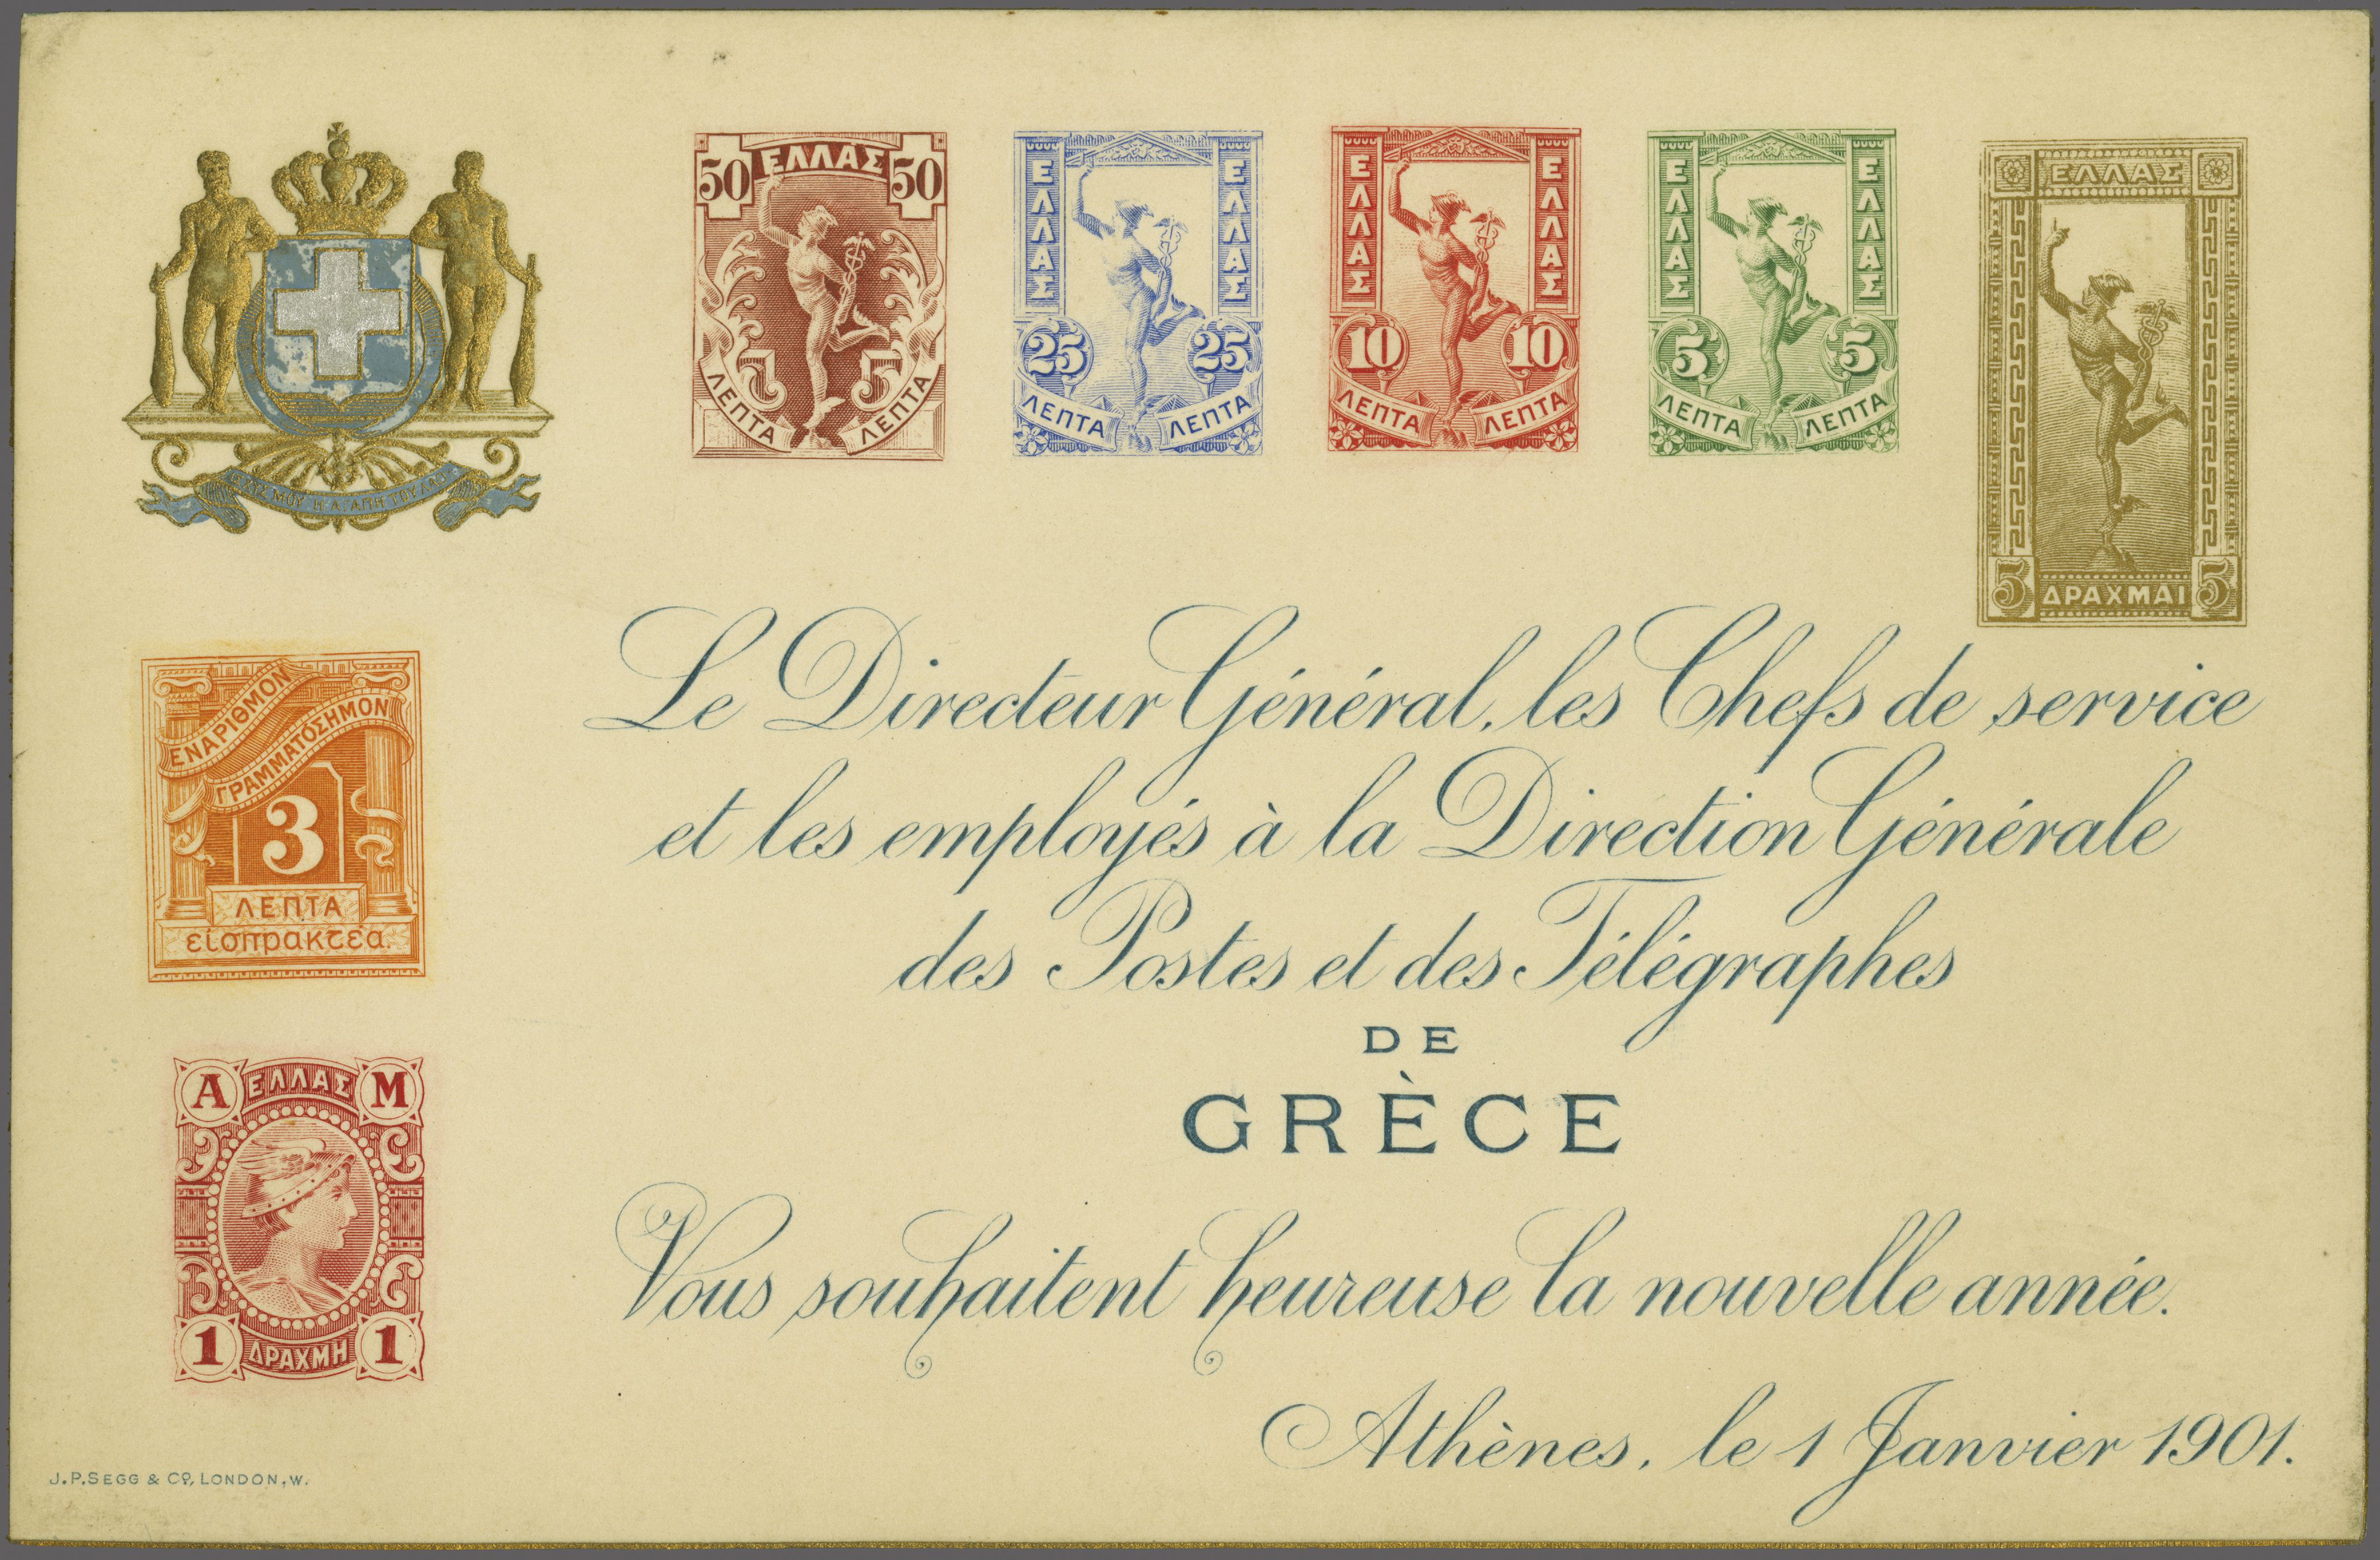 ΜΟΥ Η
50 ΕΛΛΑΣ 50
ΛΕΠΤΑ ΛΕΠΤΑ
ΕΛΛΑΣ ΕΛΛΑΣ
25 25
ΛΕΠΤΑ ΛΕΠΤΑ
ΕΛΛΑΣ ΕΛΛΑΣ
10 10
ΛΕΠΤΑ ΛΕΠΤΑ
ΕΛΛΑΣ ΕΛΛΑΣ
5 5
ΛΕΠΤΑ ΛΕΠΤΑ
ΕΛΛΑΣ
5 ΔΡΑΧΜΑΙ 5
ΕΝΑΡΙΘΜΟΝ
ΓΡΑΜΜΑΤΟΣΗΜΟΝ
3
ΛΕΠΤΑ
εἰσπρακτέα.
Α ΕΛΛΑΣ Μ
1 ΔΡΑΧΜΗ 1
Le Directeur Général, les Chefs de service
et les employés à la Direction Générale
des Postes et des Télégraphes
DE
GRÈCE
Vous souhaitent heureuse la nouvelle année.
Athènes, le 1 Janvier 1901.
J.P. SEGG & Co, LONDON, W.